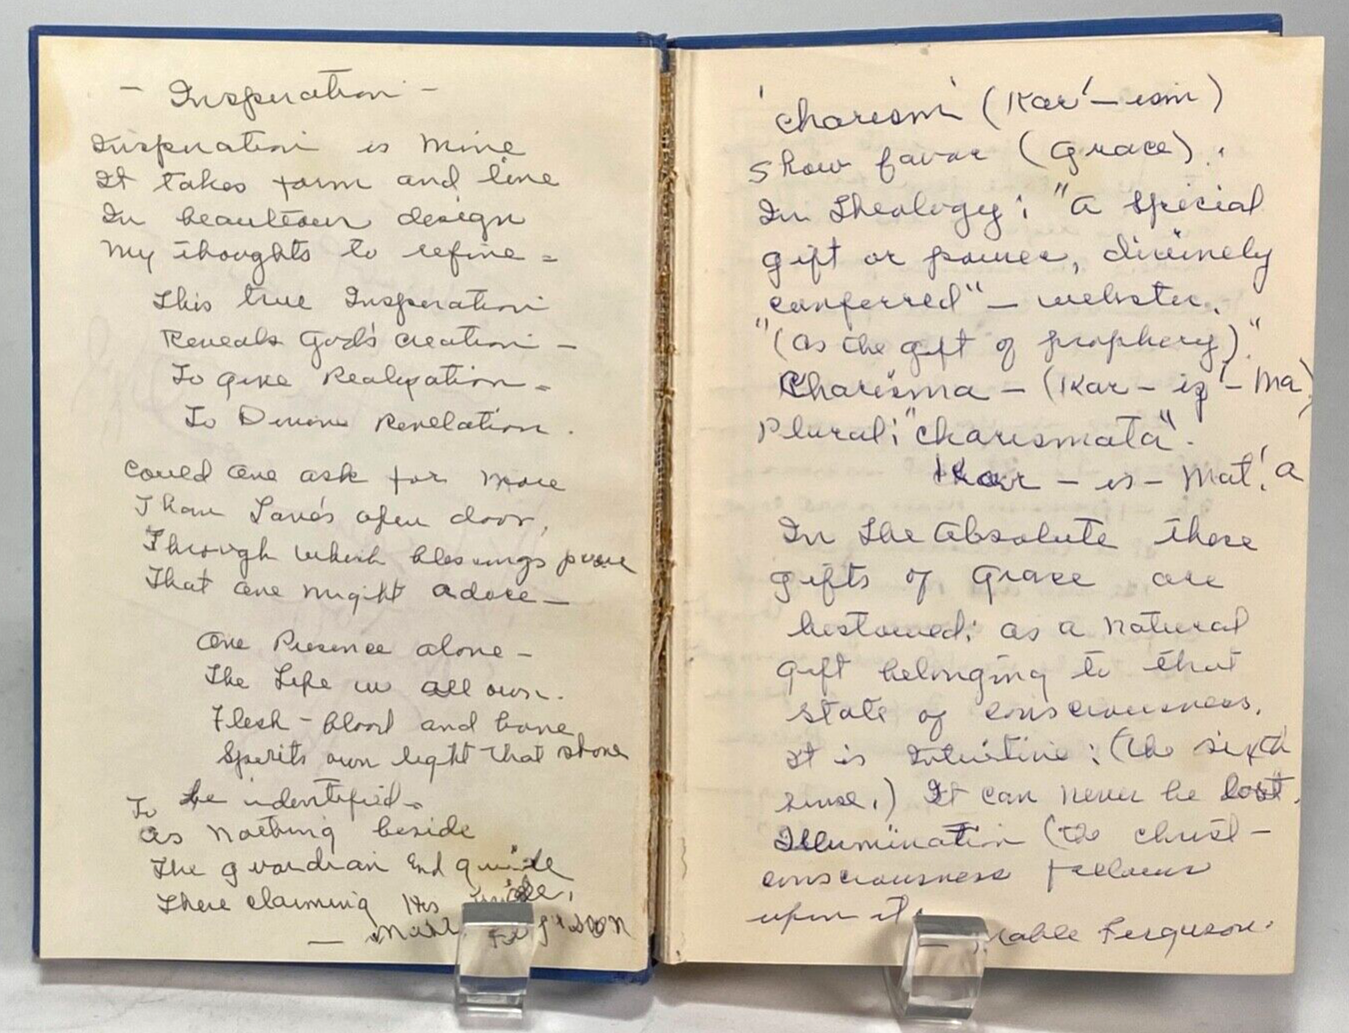 - Inspiration -
Inspiration is mine
It takes form and line
In beauteous design
My thoughts to refine =
This true Inspiration
Reveals God's creation -
To give Realization =
To Divine Revelation.
Could one ask for more
Than Love's open door,
Through which blessings pour
That one might adore -
One Presence alone -
The Life in all own.
Flesh - blood and bone
Spirits own light that shone
To be indentified -
As nothing beside
The guardian and guide
There claiming His
- Ferguson
'charism' (Kar'-ism)
show favor (Grace).
In Theology; "a special
gift or power, divinely
conferred" - webster.
"(as the gift of prophecy)."
Charisma - (Kar - iz' - ma)
Plural; "charismata".
Kar - is - mat'. a
In the Absolute these
gifts of Grace are
bestowed; as a natural
gift belonging to that
state of consciousness.
It is Intuitive; (the sixth
sense.) It can never be lost.
Illumination (the christ -
consciousness follows
upon it
- Mable Ferguson.